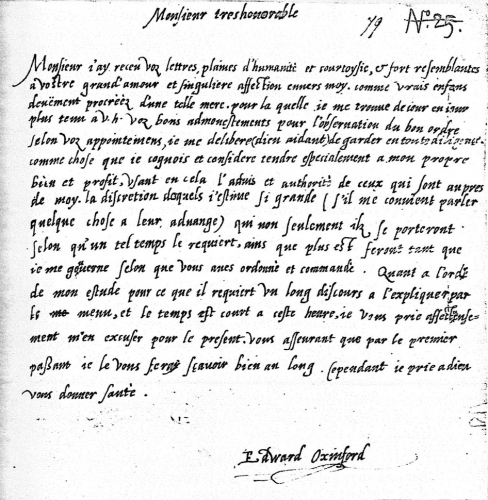 Monsieur treshonorable
79 N°. 25.
Monsieur i'ay receu voz lettres, plaines d'humanité et courtoysie, & fort resemblantes
a vostre grand'amour et singuliere affection envers moy. comme vrais enfans
deuëment procreez d'une telle mere. pour la quelle ie me trouue de iour en iour
plus tenu a v. h. voz bons admonestements pour l'obseruation du bon ordre
selon voz appointemens, ie me delibere (dieu aidant) de garder en toute diligence
comme chose que ie cognois et considere tendre especialement a mon propre
bien et profit, vsant en cela l'aduis et authorité de ceux qui sont aupres
de moy. la discretion desquels i'estime si grande (s'il me conuient parler
quelque chose a leur aduange) qui non seulement ilz se porteront
selon qu'un tel temps le requiert, ains que plus est feront tant que
ie me gouuerne selon que vous aues ordonné et commandé. Quant a l'ordre
de mon estude pour ce que il requiert vn long discours a l'expliquer par
le menu, et le temps est court a ceste heure, ie vous prie affectueuse-
ment m'en excuser pour le present. vous asseurant que par le premier
passant ie le vous feray scauoir bien au long. Cependant ie prie a dieu
vous donner santé.
Edward Oxinford